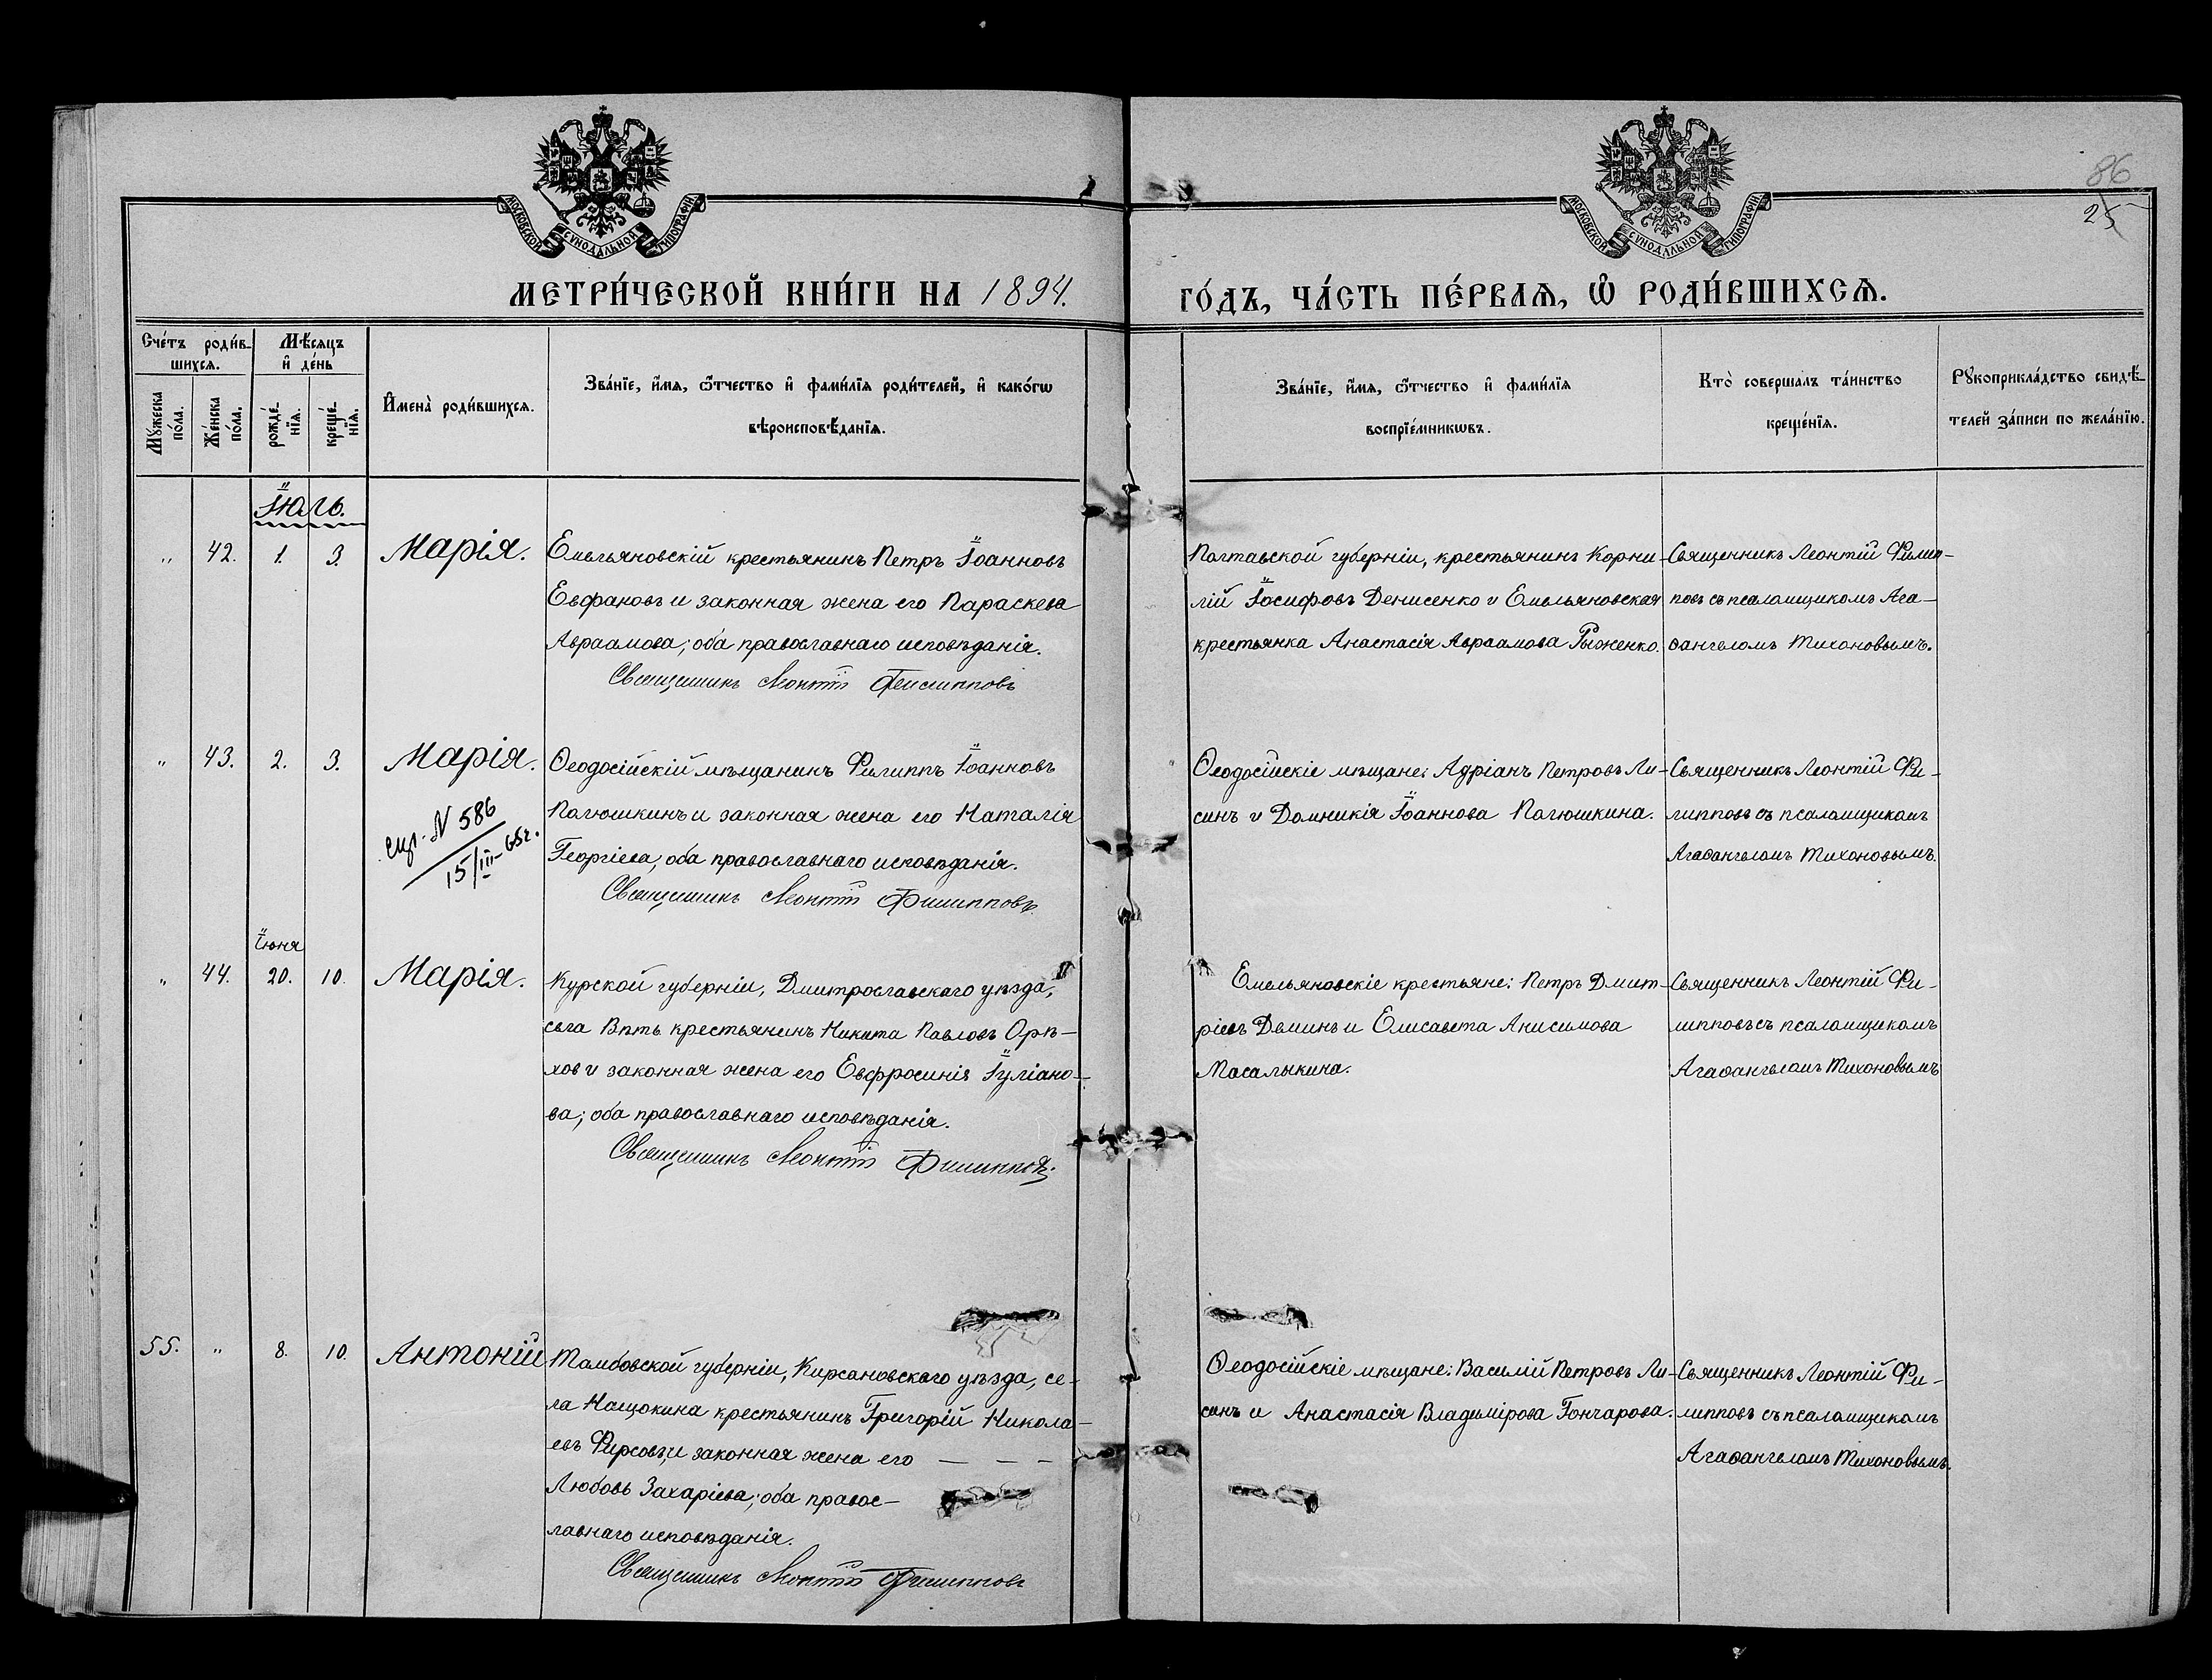 МОСКОВСКОЙ СУНОДАЛЬНОЙ ТИПОГРАФІИ
МОСКОВСКОЙ СУНОДАЛЬНОЙ ТИПОГРАФІИ
86
25
МЕТРИ́ЧЕСКОЙ КНИ́ГИ НА 1894. ГО́ДЪ, ЧА́СТЬ ПЕ́РВАѦ, Ѡ҆ РОДИ́ВШИХСѦ.
Сче́тъ роди́в-
шихсѧ.
Мѣ́сѧцъ
и҆ де́нь
Мꙋ́жеска
по́ла.
Же́нска
по́ла.
рожде́-
нїѧ.
креще́-
нїѧ.
И҆мена̀ роди́вшихсѧ.
Зва́нїе, и҆́мѧ, ѻ҆́тчество и҆ фами́лїѧ роди́телей, и҆ како́гѡ
вѣроисповѣ́данїѧ.
Зва́нїе, и҆́мѧ, ѻ҆́тчество и҆ фами́лїѧ
воспрїе́мникѡвъ.
Кто̀ соверша́лъ та́инство
креще́нїѧ.
Рꙋкоприкла́дство свидѣ́-
телей за́писи по жела́нїю.
Іюль.
„ 42. 1. 3. Марія.
Емельяновскій крестьянинъ Петръ Іоанновъ
Евфановъ и законная жена его Параскева
Авраамова; оба православнаго исповѣданія.
Священникъ Леонтій Филипповъ
Полтавской губерніи, крестьянинъ Корни-
лій Іосифовъ Денисенко и Емельяновская
крестьянка Анастасія Авраамова Рыженко.
Священникъ Леонтій Филип-
повъ съ псаломщикомъ Ага-
ѳангеломъ Тихоновымъ.
„ 43. 2. 3. Марія.
№ 586
15/III-65г.
Ѳеодосійскій мѣщанинъ Филиппъ Іоанновъ
Полюшкинъ и законная жена его Наталія
Георгіева; оба православнаго исповѣданія.
Священникъ Леонтій Филипповъ
Ѳеодосійскіе мѣщане: Адріанъ Петровъ Ли-
синъ и Домникія Іоаннова Полюшкина.
Священникъ Леонтій Фи-
липповъ съ псаломщикомъ
Агаѳангеломъ Тихоновымъ.
Іюня
„ 44. 20. 10. Марія.
Курской губерніи, Дмитрославскаго уѣзда,
села Вѣть крестьянинъ Никита Павловъ Орѣ-
ховъ и законная жена его Евфросинія Іуліано-
ва; оба православнаго исповѣданія.
Священникъ Леонтій Филипповъ.
Емельяновскіе крестьяне: Петръ Дмит-
ріевъ Деминъ и Елисавета Анисимова
Масалыкина.
Священникъ Леонтій Фи-
липповъ съ псаломщикомъ
Агаѳангеломъ Тихоновымъ
55. „ 8. 10. Антоній
Тамбовской губерніи, Кирсановскаго уѣзда, се-
ла Нащокина крестьянинъ Григорій Никола-
евъ Фирсовъ, и законная жена его — — —
Любовь Захаріева; оба правос-
лавнаго исповѣданія.
Священникъ Леонтій Филипповъ
Ѳеодосійскіе мѣщане: Василій Петровъ Ли-
синъ и Анастасія Владимірова Гончарова.
Священникъ Леонтій Фи-
липповъ съ псаломщикомъ
Агаѳангеломъ Тихоновымъ.